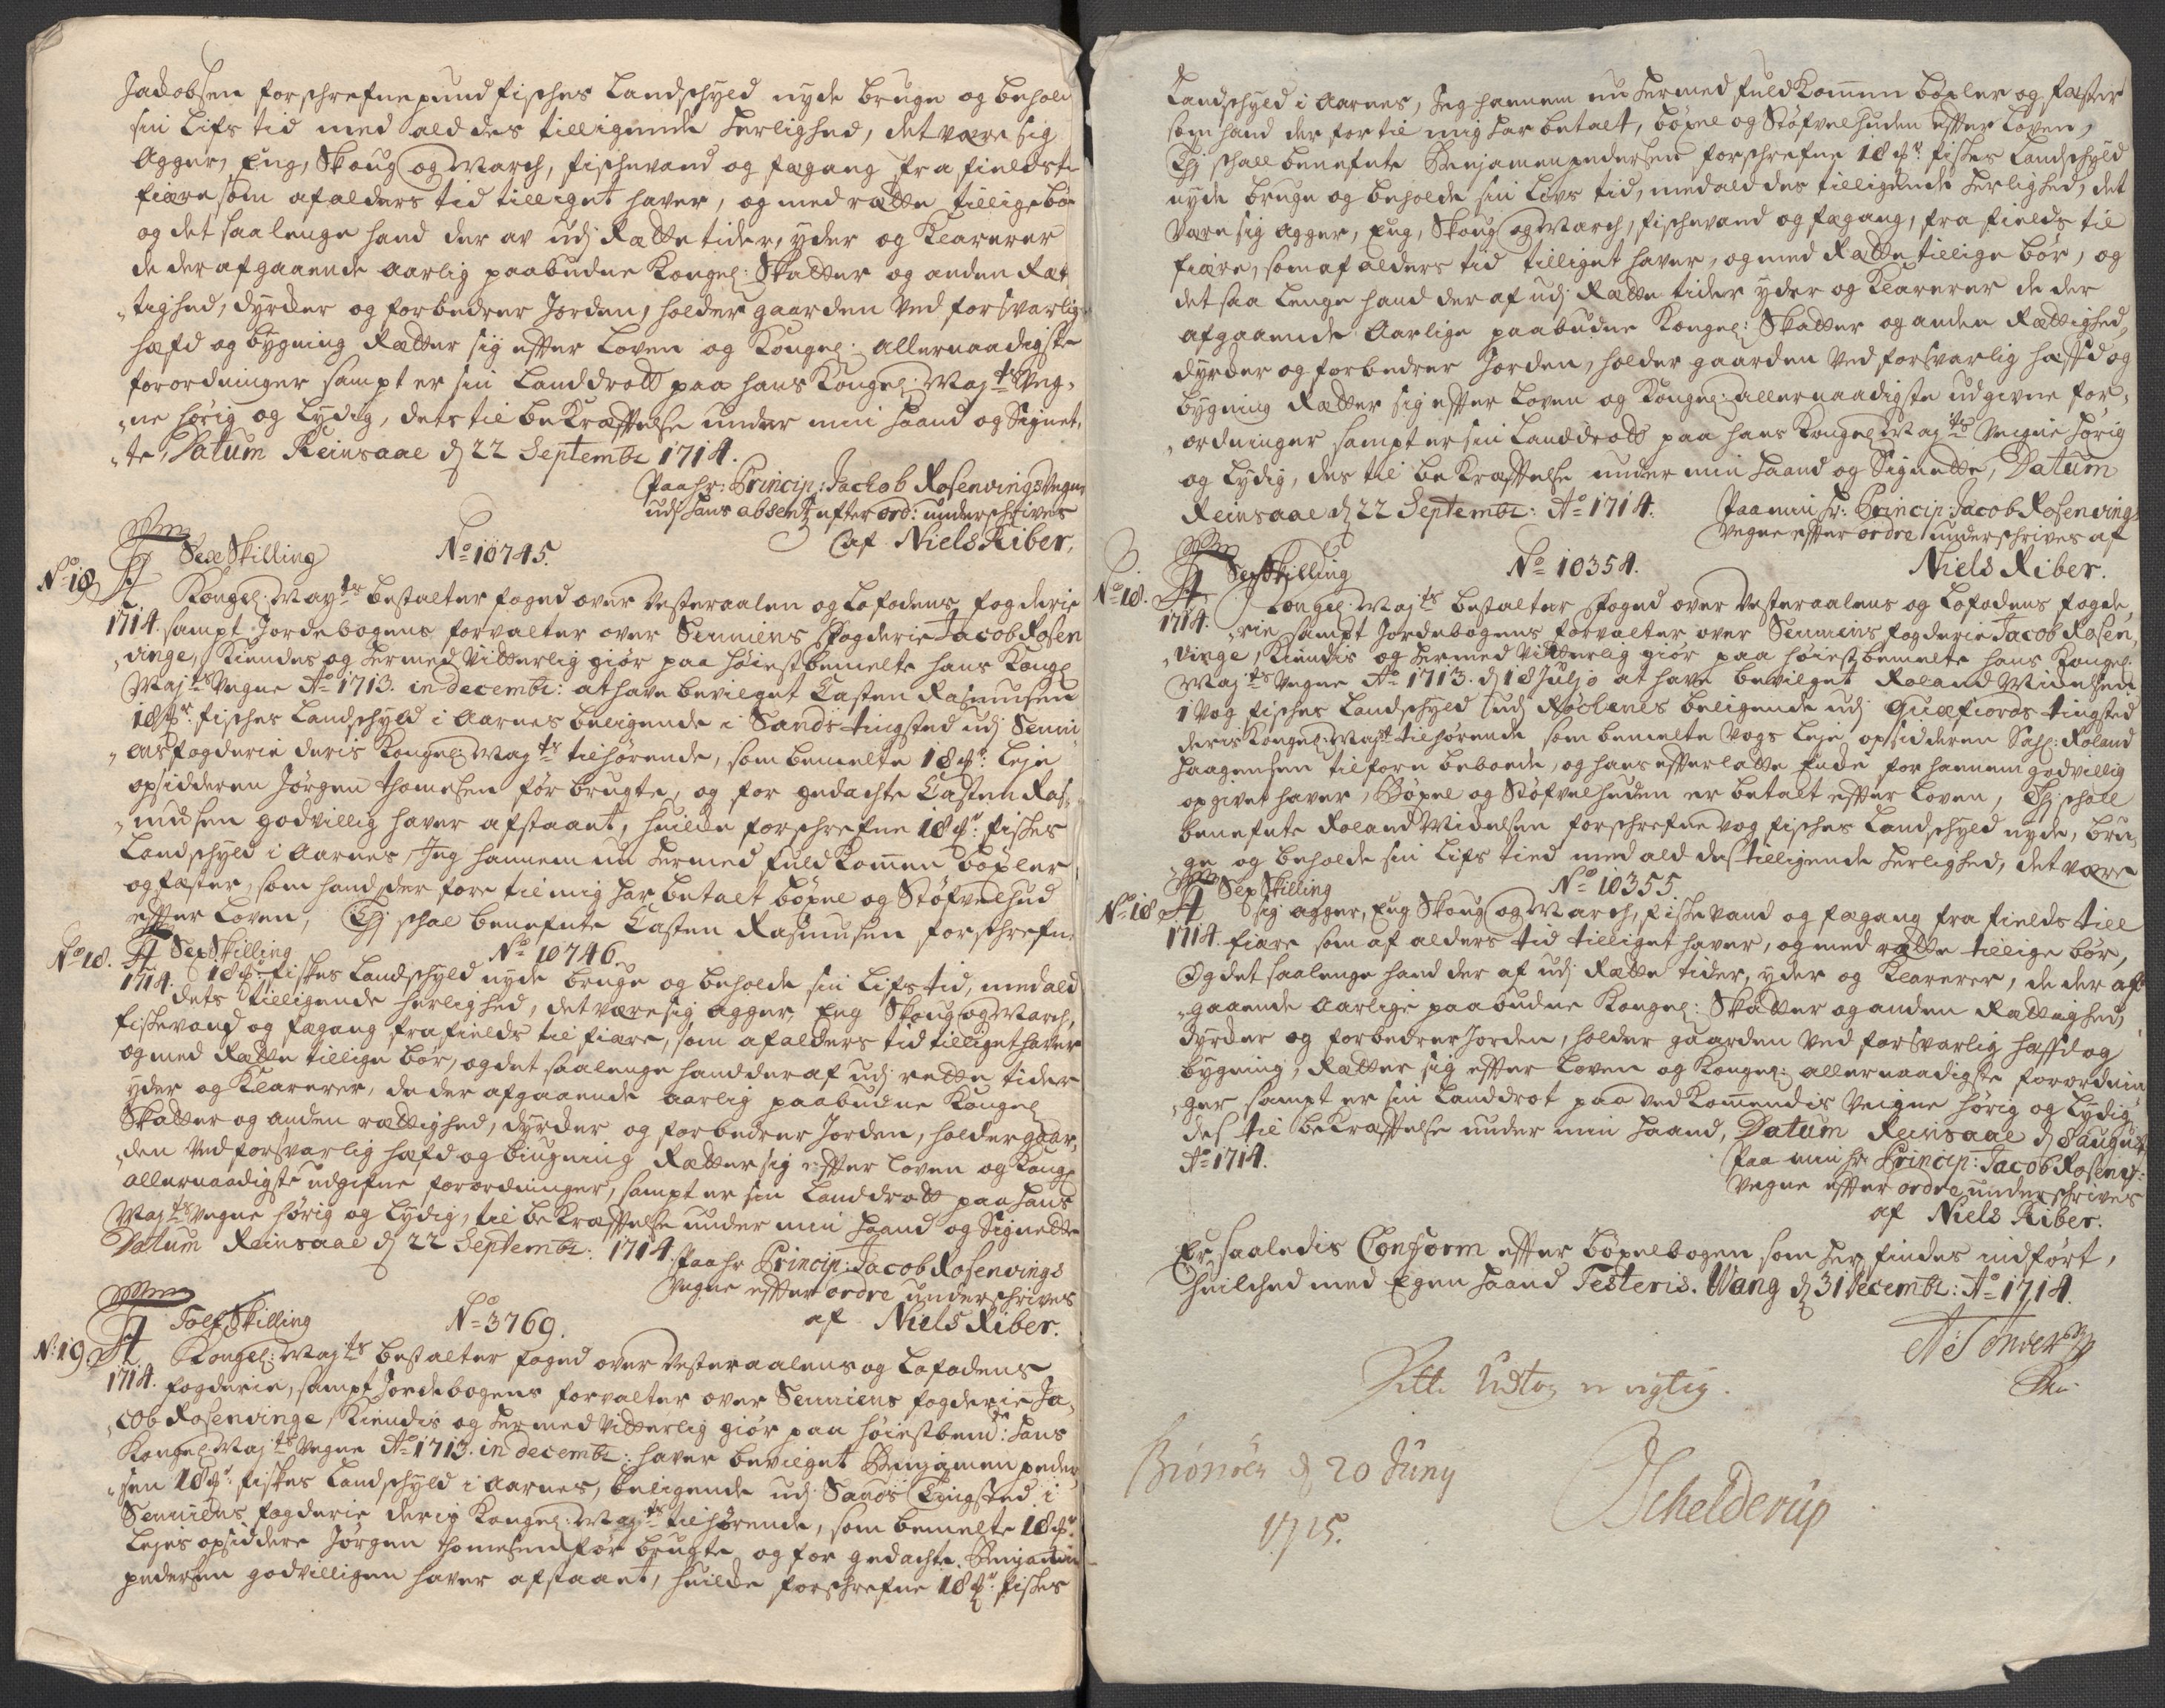 Jacobsen forschrefne pund fisches Landschyld nyde bruge og behold
sin Lifs tid med ald des tilligende Herlighed, det være sig
Agger, Eng, Skoug og March, fischevand og fægang fra fields te
fiære som af alders tid tilliget haver, og med rætte tillige bør
og det saa lenge hand der av udj Rætte tider, yder og Klarerer
de der afgaaende aarlig paabudne Kongel: Skatter og anden Ræt
tighed, dyrcker og forbedrer Jorden, holder gaarden ved forsvarlig
hæfd og bygning Rætter sig effter Loven og Kongel: allernaadigste
forordninger sampt er sin Landdrott paa hans Kongel: May:ts Veg,
ne hørig og lydig, dets til bekræfftelse under min haand og Signet,
te, Datum Reinsaae d: 22 Septembr 1714.
Paa hr: Princip: Jacob Rosenvings Vegne
udj hans absentz efter ord: underschrives
af Niels Riber,
No 18
Sex Skilling No 10745.
Kongel: May:ts bestalter foged over Vesteraalen og Lofodens fogderie
1714. sampt Jordebogens forvalter over Senniens fogderie Jacob Rosen
vinge, Kiendes og hermed Vitterlig giør paa høiestbemelte hans Kongl
Maj:ts Vegne Ao 1713. in decembr: at have bevilget Casten Rasmusen
18 pr: fisches Landschyld i Aarnes beligende i Sands tingsted udj Senni
ens fogderie deris Kongel: May:ts tilhørende, som bemelte 18 pr: Leje
opsidderen Jørgen Thomesen før brugte, og for gedachte Casten Ras,
musen godvillig haver afstaaet, huilcke forschrefne 18 pr: fisches
Landschyld i Aarnes, Jeg hannem nu hermed fuldkommen böxler
og fæster, som hand der fore til mig har betalt böxel og Støfvelhud
effter Loven, Thj schal benefnte Casten Rasmusen forschrefne
No 18. Sex Skilling No 10746.
1714. 18 pr: fiskes Landschyld nyde bruge og beholde sin Lifs tid, med ald
dets tilligende herlighed, det være sig Agger, Eng Skoug og March,
fiskevand og fægang fra fields til fiære, som af alders tid tilliget haver
og med Rætte tillige bør, og det saa lenge hand der af udj rette tider
yder og Klarerer, de der afgaaende aarlig paabudne Kongel
Skatter og anden rættighed, dyrcker og forbedrer Jorden, holder gaar,
den ved forsvarlig hæfd og biugning Rætter sig effter Loven og Kongl
allernaadigste udgifne forordninger, sampt er sin Landdrott paa hans
May:ts Vegne hørig og lydig, til bekræfftelse under min haand og Signette
Datum Reinsaae d: 22 Septembr: 1714. Paa hr Princip: Jacob Rosenvings
Vegne effter ordre underschrives
af Niels Riber.
Tolf Skilling No 3769.
No: 19
Kongel: May:ts bestalter foged over Vesteraalens og Lofodens
1714. fogderie, sampt Jordebogens forvalter over Senniens fogderie Ja,
cob Rosenvinge, Kiendis og hermed Vitterlig giør paa høiestbem:te hans
Kongel: May:ts Vegne Ao 1713. in decembr: haver bevilget Benjamen peder
sen 18 pr: fiskes Landschyld i Aarnes, beligende udj Sands Tingsted i
Senniens fogderie deris Kongel: May:ts tilhørende, som bemelte 18 pr:
Lejes opsiddere Jørgen Thomesen før brugte og for gedachte Benjamin
pedersen godvilligen haver afstaaet, huilcke forschrefne 18 pr: fiskes
Landschyld i Aarnes, Jeg hannem nu hermed fuldkommen böxler og fæster
som hand der for til mig har betalt, böxel og Støfvelhuden effter Loven,
Thj schall benefnte Benjamen pedersen forschrefne 18 pr: fiskes Landschyld
nyde bruge og beholde sin Livs tid, med ald des tilligende herlighed, det
være sig Agger, Eng, Skoug og March, fischevand og fægang, fra fields til
fiære, som af alders tid tilliget haver, og med Rætte tillige bør, og
det saa lenge hand der af udj Rætte tider yder og Klarerer de der
afgaaende Aarlige paabudne Kongel: Skatter og anden Rættighed,
dyrcker og forbedrer Jorden, holder gaarden ved forsvarlig hæfd og
bygning Rætter sig effter Loven og Kongel: allernaadigste udgivne for,
ordninger sampt er sin Landdrott paa hans Kongel May:ts Veigne hørig
og lydig, des til bekræfftelse under min haand og Signette, Datum
Reinsaae d: 22 Septembr: Ao 1714. Paa min hr: Princip Jacob Rosenvings
Vegne effter ordre underschrives af
Niels Riber.
Sex Skilling No 10354.
No 18.
Kongel: May:ts bestalter foged over Vesteraalens og Lofodens fogde,
1714. rie sampt Jordebogens forvalter over Senniens fogderie Jacob Rosen,
vinge, Kiendis og hermed Vitterlig giør paa høiestbemelte hans Kongel.
May:ts Vegne Ao 1713. d: 18 Julj o at have bevilget Roland Michelsen
1 Vog fisches Landschyld udj Röchenes beligende udj Quæfiords tingsted
deris Kongel: May:tt tilhørende som bemelte Vogs Leje opsidderen Sahl: Roland
Haagensen tilforn beboede, og hans effterlatte Encke for hannem godvillig
opgivet haver, Böxel og Støfvelhuden er betalt effter Loven, Thj schall
benefnte Roland Michelsen forschrefne vog fisches Landschyld nyde, bru,
ge og beholde sin Lifs tied med ald des tilligende herlighed, det være
Sex Skilling No 10355
No 18
sig Agger, Eng Skoug og March, fiskevand og fægang fra fields till
1714. fiære som af alders tid tilliget haver, og med rætte tillige bør,
Og det saa lenge hand der af udj Rætte tider, yder og Klarerer, de der af
gaaende Aarlige paabudne Kongel: Skatter og anden Rættighed,
dyrcker og forbedrer Jorden, holder gaarden ved forsvarlig hæffd og
bygning, Rætter sig effter Loven og Kongel: allernaadigste forordnin
ger sampt er sin Landdrot paa vedkommendis Veigne hørig og lydig
des til bekræfftelse under min haand, Datum Reinsaae d: 8 August
Ao 1714.
Paa min hr Princip: Jacob Rosenv:
Vegne effter ordre underschrives
af Niels Riber.
Er saaledis Conform effter böxelbogen som her findes indført,
huilched med Egen haand Testeris. Wang d: 31 Decembr: Ao 1714.
Dette Udtog er rigtig.
Brönöen d: 20 Juny
1715.
Schelderup